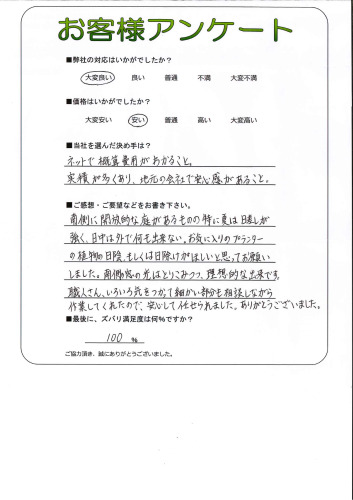 お客様アンケート
■弊社の対応はいかがでしたか？
大変良い 良い 普通 不満 大変不満
■価格はいかがでしたか？
大変安い 安い 普通 高い 大変高い
■当社を選んだ決め手は？
ネットで概算費用がわかること。
実績が多くあり、地元の会社で安心感があること。
■ご感想・ご要望などをお書き下さい。
南側に開放的な庭があるものの特に夏は日差しが
強く、日中は外で何も出来ない。お気に入りのプランター
の植物の日陰、もしくは日除けがほしいと思ってお願い
しました。南側窓の光はとりこみつつ、理想的な出来です。
職人さん、いろいろ気をつかって細かい部分も相談しながら
作業してくれたので、安心して任せられました。ありがとうございました。
■最後に、ズバリ満足度は何％ですか？
100 %
ご協力頂き、誠にありがとうございました。